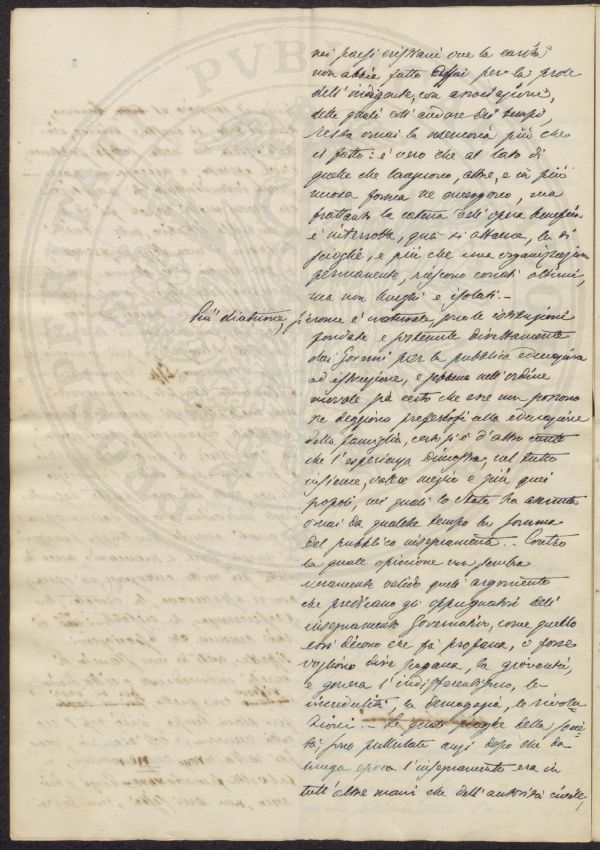 nei paesi cristiani ove la carità
non abbia fatto assai per la prole
dell'indigente, con associazioni,
delle quali coll'andare dei tempi,
resta omai la memoria più che
il fatto: è vero che al lato di
quelle che languono, altre, e in più
nuova forma ne emergono, ma
frattanto la catena dell'opera benefica
è interrotta, qua si attacca, là si
scioglie, e più che una organizzazione
permanente, riescono conati ottimi,
ma non lunghi e isolati. —
Più diuturne, siccome è naturale, sono le istituzioni
fondate e sostenute direttamente
dai Governi per la pubblica educazione
ed istruzione, e sebbene nell'ordine
morale sia certo che esse non possono
nè deggiono preferirsi alla educazione
della famiglia, certo si è d'altro canto
che l'esperienza dimostra, nel tutto
insieme, valere meglio e più quei
popoli, nei quali lo Stato ha assunto
omai da qualche tempo la somma
del pubblico insegnamento. — Contro
la quale opinione non sembra
veramente valido quell'argomento
che predicano gli oppugnatori dell'
insegnamento Governativo, come quello
essi dicono che fa profana, o forse
vogliono dire pagana, la gioventù,
e genera l'indifferentismo, la
incredulità, la demagogia, le rivolu-
zioni. — Le quali piaghe della socie-
tà, sono pullulate anzi dopo che da
lunga epoca l'insegnamento era in
tutt'altre mani che dell'autorità civile,